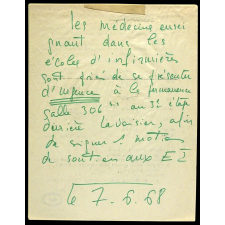 les médecins ensei
gnant dans les
écoles d'infirmières
sont priés de se présenter
d'urgence à la permanence
salle 306 bis au 3e étage
derrière Lavoisier, afin
de signer 1 motion
de soutien aux E I
le 7.6.68